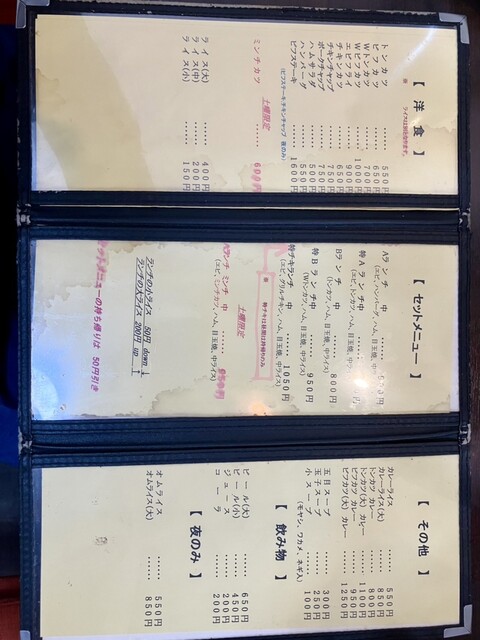 【 洋 食 】
※ ライスは別になります。
トンカツ ・・・・・・ 550円
ビフカツ ・・・・・・ 650円
Wトンカツ ・・・・・・ 700円
Wビフカツ ・・・・・・ 1000円
エビフライ ・・・・・・ 900円
チキンカツ ・・・・・・ 650円
チキンチャップ ・・・・・・ 750円
ポークチャップ ・・・・・・ 750円
ハムサラダ ・・・・・・ 500円
ハンバーグ ・・・・・・ 550円
ビフステーキ ・・・・・・ 1600円
(ビフステーキ・チキンチャップ 夜のみ)
土曜限定
ミンチカツ ・・・・・・ 600円
ライス(大) ・・・・・・ 400円
ライス(中) ・・・・・・ 200円
ライス(小) ・・・・・・ 150円
【 セットメニュー 】
Aランチ 中 ・・・・・・
(エビ、ハンバーグ、ハム、目玉焼、中ライス)
特Aランチ 中 ・・・・・・
(エビ、トンカツ、ハム、目玉焼、中ライス)
Bランチ 中 ・・・・・・ 800円
(トンカツ、ハム、目玉焼、中ライス)
特Bランチ 中 ・・・・・・ 950円
(Wトンカツ、ハム、目玉焼、中ライス)
特チキランチ 中 ・・・・・・ 1050円
(エビ、グリルチキン、ハム、目玉焼、中ライス)
※ 特チキは昼間は持帰りのみ
土曜限定
Aランチ ミンチ 中
(エビ、ミンチカツ、ハム、目玉焼、中ライス)
ランチの小ライス 50円 down ↓
ランチの大ライス 200円 up ↑
セットメニューの持ち帰りは 50円引き
【 その他 】
カレーライス ・・・・・・ 550円
カレーライス(大) ・・・・・・ 850円
トンカツ カレー ・・・・・・ 800円
トンカツ(大) カレー ・・・・・・ 1100円
ビフカツ カレー ・・・・・・ 950円
ビフカツ(大) カレー ・・・・・・ 1250円
五目スープ ・・・・・・ 300円
玉子スープ ・・・・・・ 250円
小スープ ・・・・・・ 100円
(モヤシ、ワカメ、ネギ入)
【 飲み物 】
ビール(大) ・・・・・・ 650円
ビール(小) ・・・・・・ 450円
ジュース ・・・・・・ 200円
コーラ ・・・・・・ 200円
【 夜のみ 】
オムライス ・・・・・・ 550円
オムライス(大) ・・・・・・ 850円